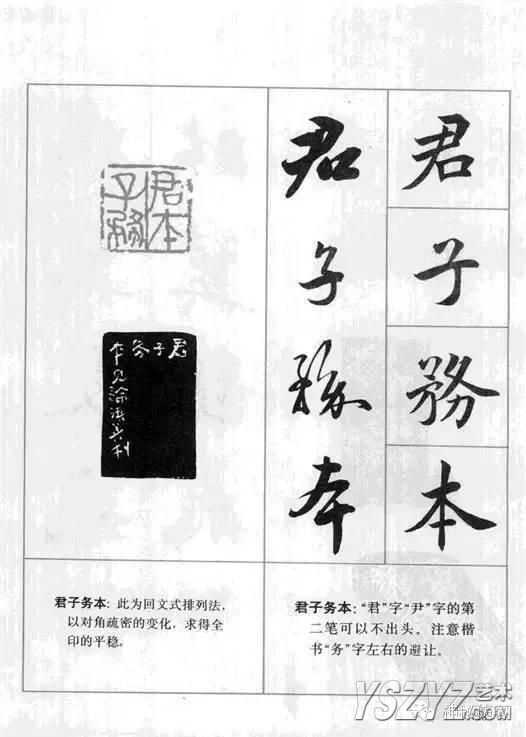 君
子
務
本
君
子
務
本
君子務本
君子务
本见论语
君子务本：此为回文式排列法，
以对角疏密的变化，求得全
印的平稳。
君子务本：“君”字“尹”字的第
二笔可以不出头。注意楷
书“务”字左右的避让。
YSZYZ艺术
.COM